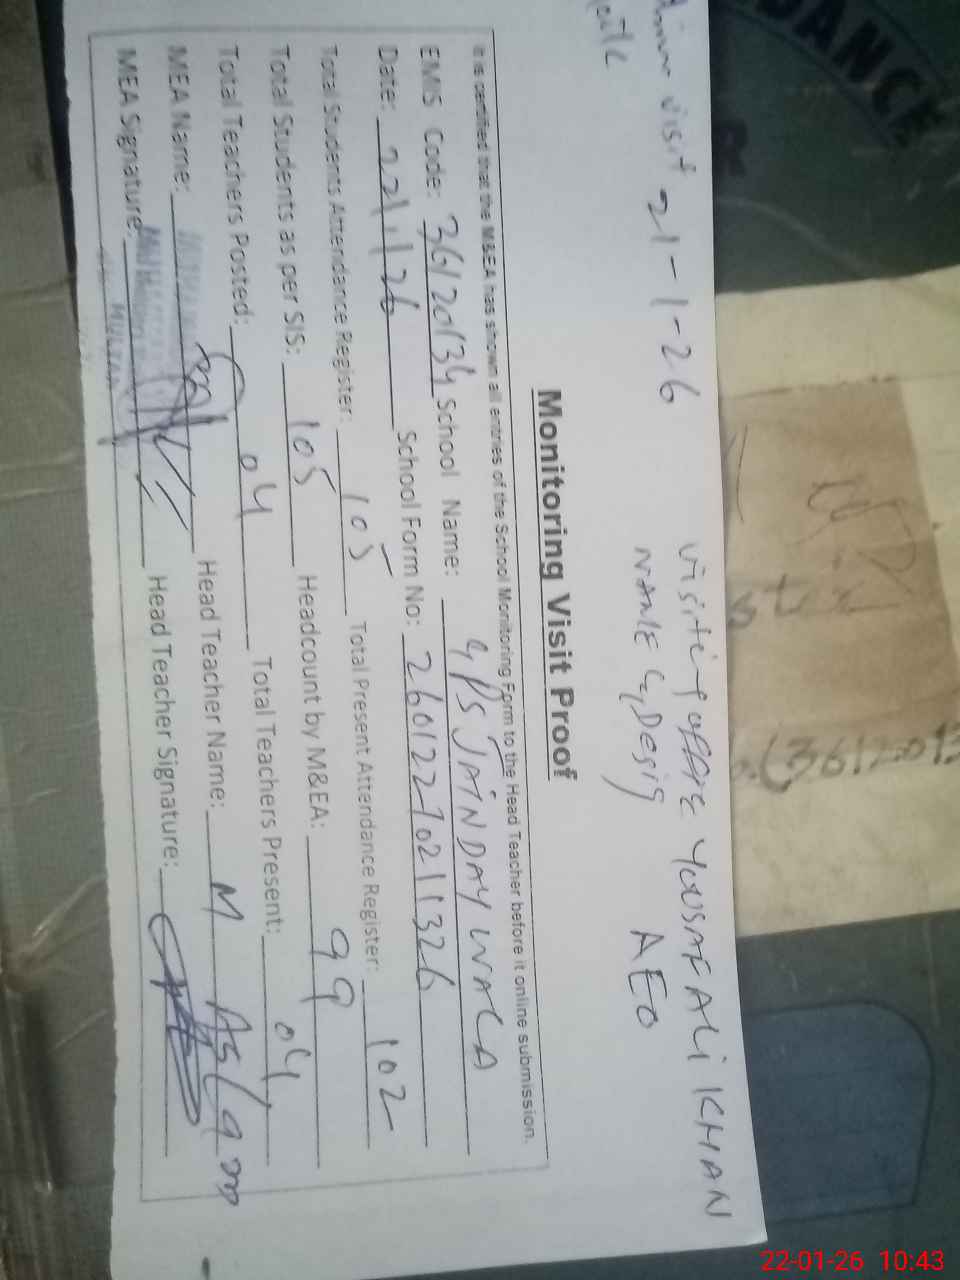 Admin visit 21-1-26 visiting officer YOUSAF ALI KHAN
NAME & Desig AEO
Monitoring Visit Proof
It is certified that the M&EA has shown all entries of the School Monitoring Form to the Head Teacher before it online submission.
EMIS Code: 36120134 School Name: GPS JAINDAY WALA
Date: 22/1/26 School Form No: 2601221021326
Total Students Attendance Register: 105 Total Present Attendance Register: 102
Total Students as per SIS: 105 Headcount by M&EA: 99
Total Teachers Posted: 04 Total Teachers Present: 04
MEA Name: Head Teacher Name: M Aslam
MEA Signature: Head Teacher Signature:
MULTAN
DANCE
R
3612013
22-01-26 10:43